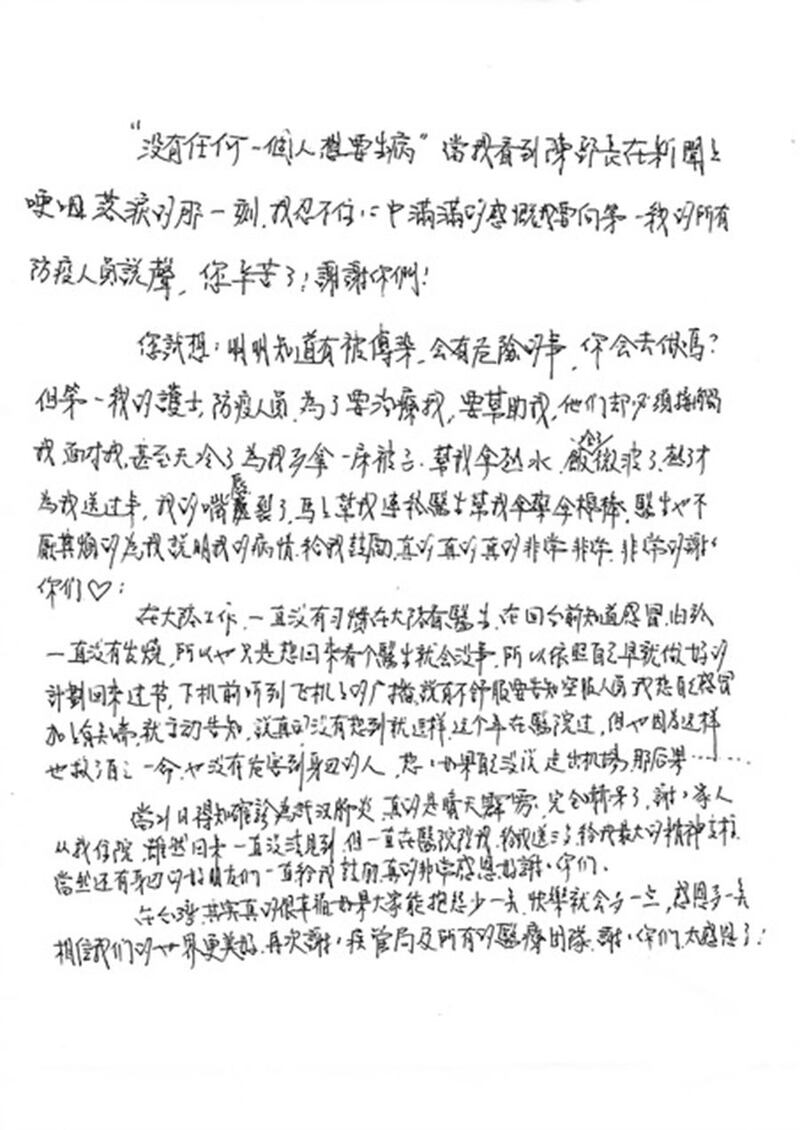 “没有任何一個人想要生病”當我看到陳部長在新聞上
哽咽落淚的那一刻,我忍不住心中滿滿的感慨我要向第一線的所有
防疫人員說聲,您辛苦了!謝謝你們!
您試想:明明知道有被傳染,会有危險的事,你会去做嗎?
但第一線的護士,防疫人員,為了要治療我,要幫助我,他们却必須接觸
我,面对我,甚至天冷了為我多拿一床被子.幫我拿热水,飯冷了微波了,热了才
為我送过來,我的嘴唇裂了,馬上幫我連絡醫生幫我拿藥拿棉棒,醫生也不
厭其煩的為我說明我的病情.給我鼓励,真的真的真的非常非常.非常的謝謝
你们♡:
在大陸工作,一直没有习慣在大陸看醫生,在回台前知道感冒,由於
一直没有发燒,所以也只是想回來看个醫生就会没事,所以依照自己早就做好的
計劃回來过节,下机前听到飞机上的广播,說有不舒服要告知空服人員我想自己感冒
加上有点咳,就主動告知,說真的没有想到就这样,这个年在醫院过,但也因為这样
也救了自己一命,也没有危害到身边的人,想想如果自己没说走出机場,那后果……
當21日得知確診為武汉肺炎,真的是晴天霹靂,完全精呆了,謝謝家人
从我住院,雖然回來一直没法見到,但一直在醫院陪我,給我送三餐,給我最大的精神支柱,
當然还有身边的好朋友们一直給我鼓励,真的非常感恩,好謝謝你们.
在台灣,其实真的很幸福如果大家能抱怨少一点,快樂就会多一点,感恩多一点
相信我们的世界更美好.再次謝謝疾管局及所有的醫療团隊.謝謝你们,太感恩了!